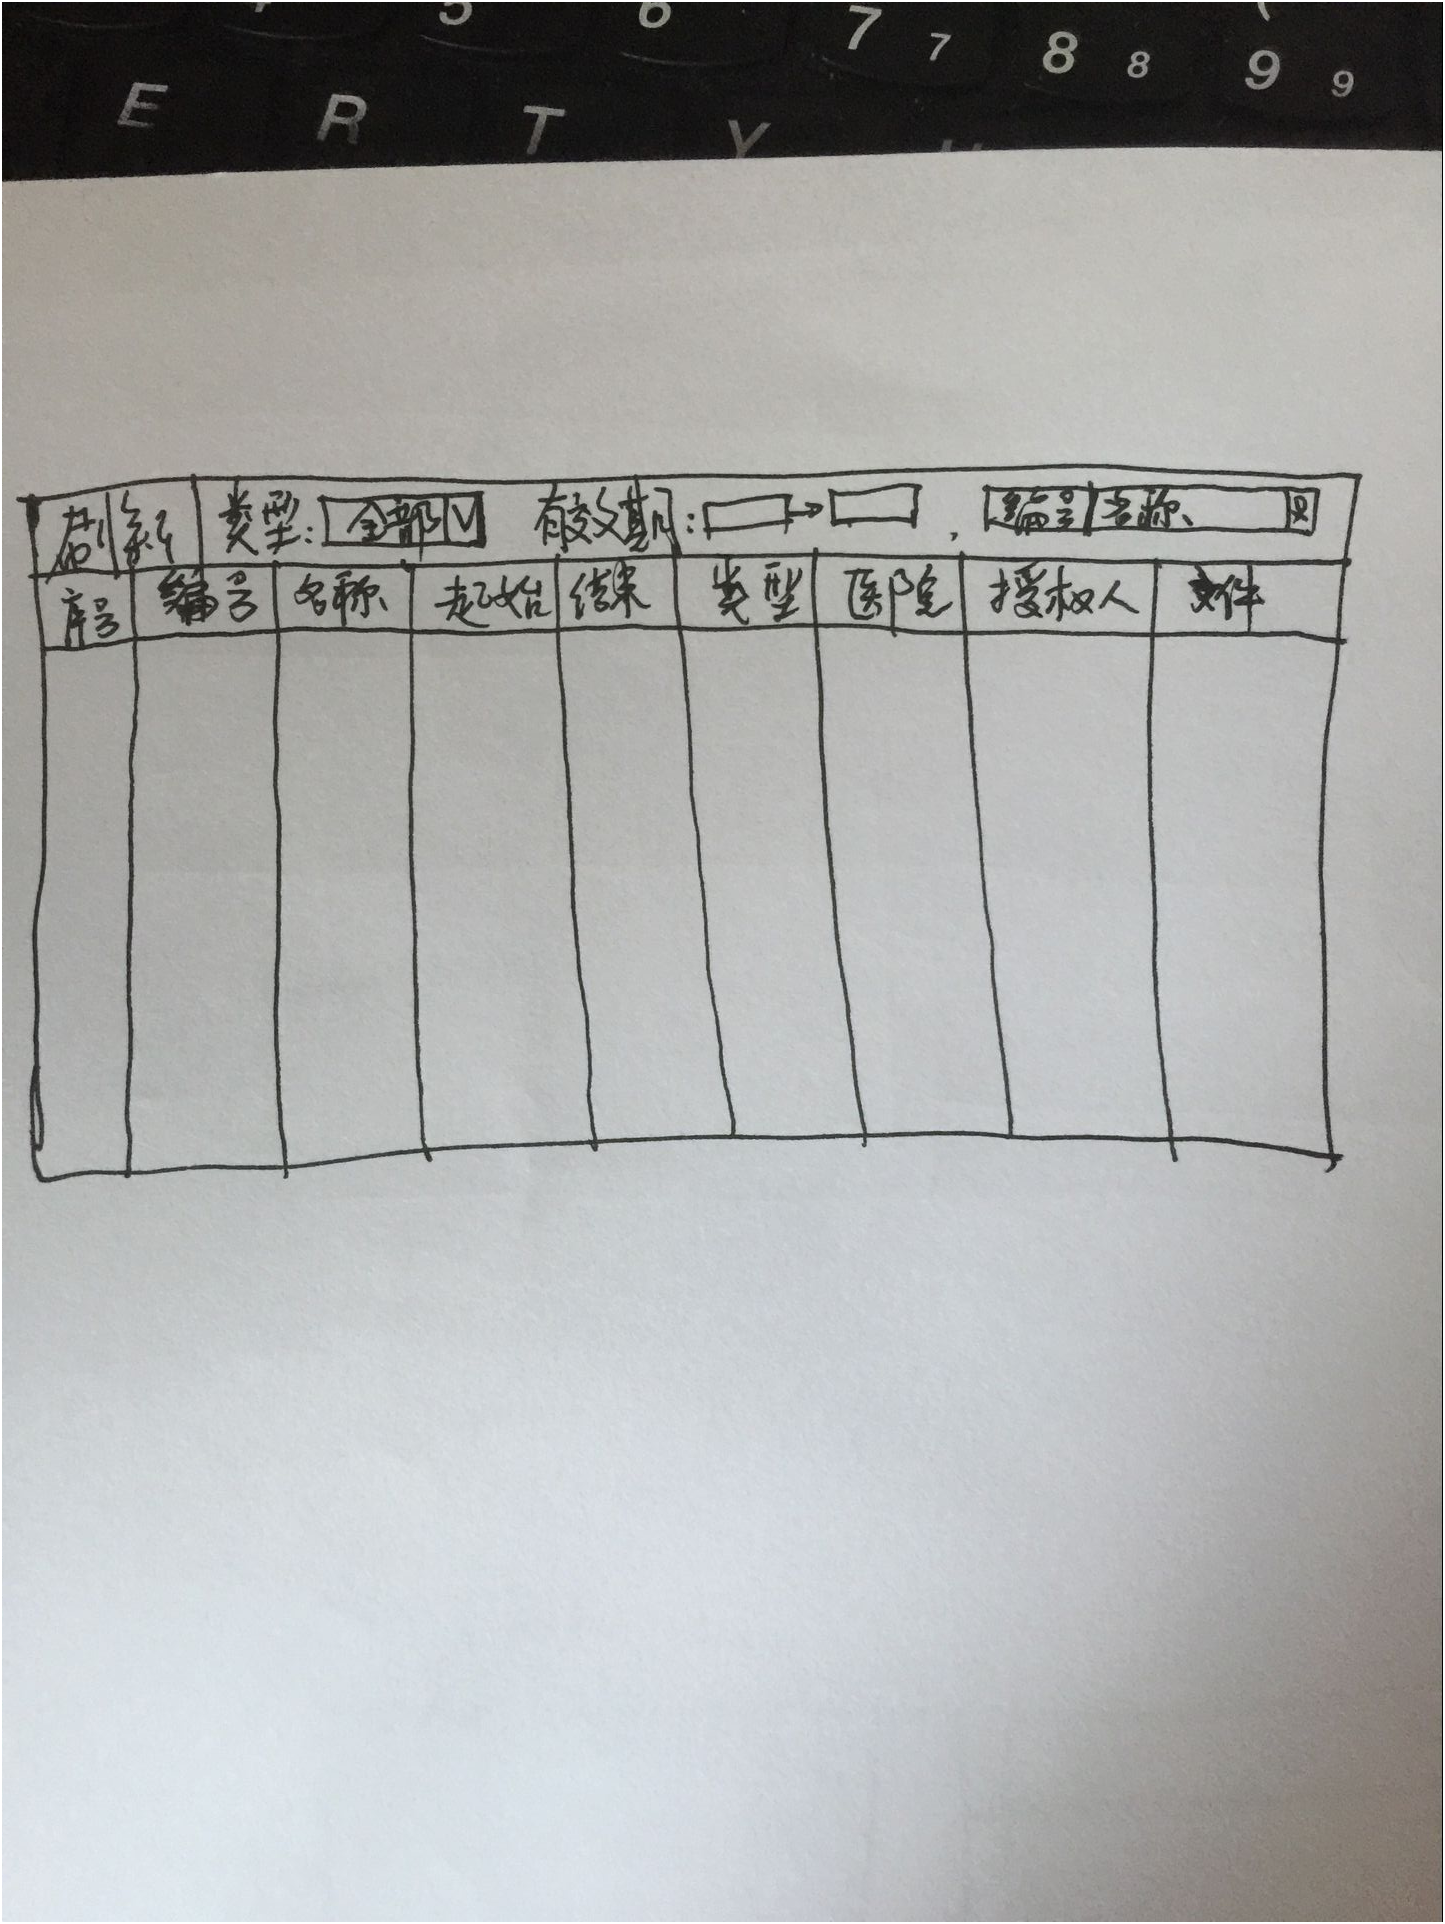 5 6 7 7 8 8 9 9
E R T Y
刷新 类型: 全部 有效期: → 编号 名称
序号 编号 名称 起始 结束 类型 医院 授权人 文件